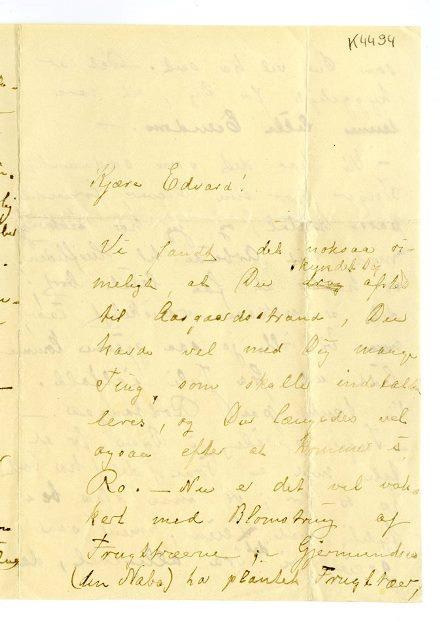 K4494
Kjære Edvard!
Vi fandt det noksaa ri-
meligt, at Du skyndte dig afsted
til Aasgaardsstrand, Du
havde vel med Dig mange
Ting, som skulle instal-
leres, og Du længtes vel
ogsaa efter at komme i
Ro. – Nu er det vel vak-
kert med Blomstring af
Frugttræerne; Gjermundsen
(din Nabo) ha plantet Frugttræer,